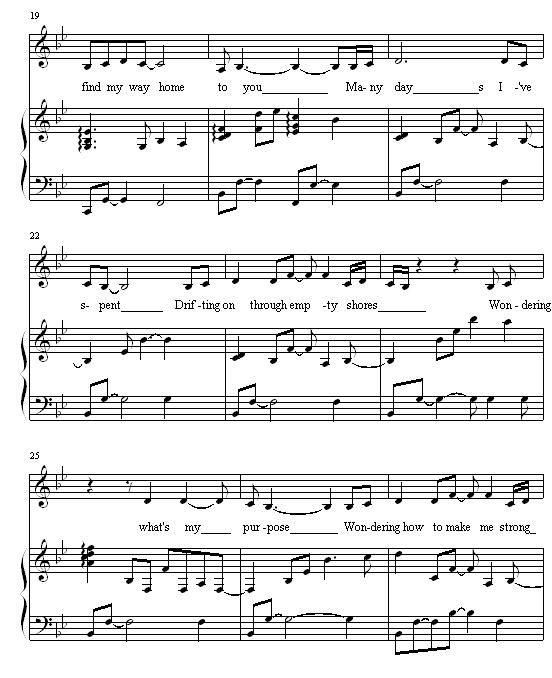 19
find my way home to you__________ Ma- ny day__________s I -'ve
22
s- pent______ Drif -ting on through emp -ty shores_______ Won - dering
25
what's my_____ pur -pose_______ Won-dering how to make me strong_